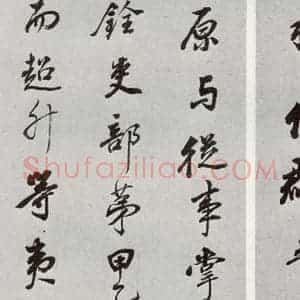 原与從事掌
銓吏部第甲乙
而超升等夷
Shufaziliao.COM